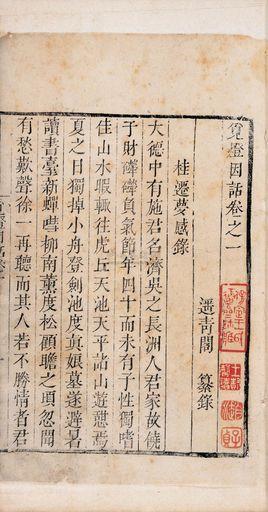 覓燈因話卷之一
遥青閣 纂錄
桂遷夢感錄
大德中有施君名濟吳之長洲人君家故饒
于財𡾰𡾰負氣節年四十而未有子性獨嗜
佳山水暇輒往虎丘天池天平諸山遊憩焉
夏之日獨掉小舟登劍池度真娘墓遂避暑
讀書臺新蟬嘒柳南薰度松顧瞻之頃忽聞
有愁歎聲徐一再聽而其人若不勝情者君